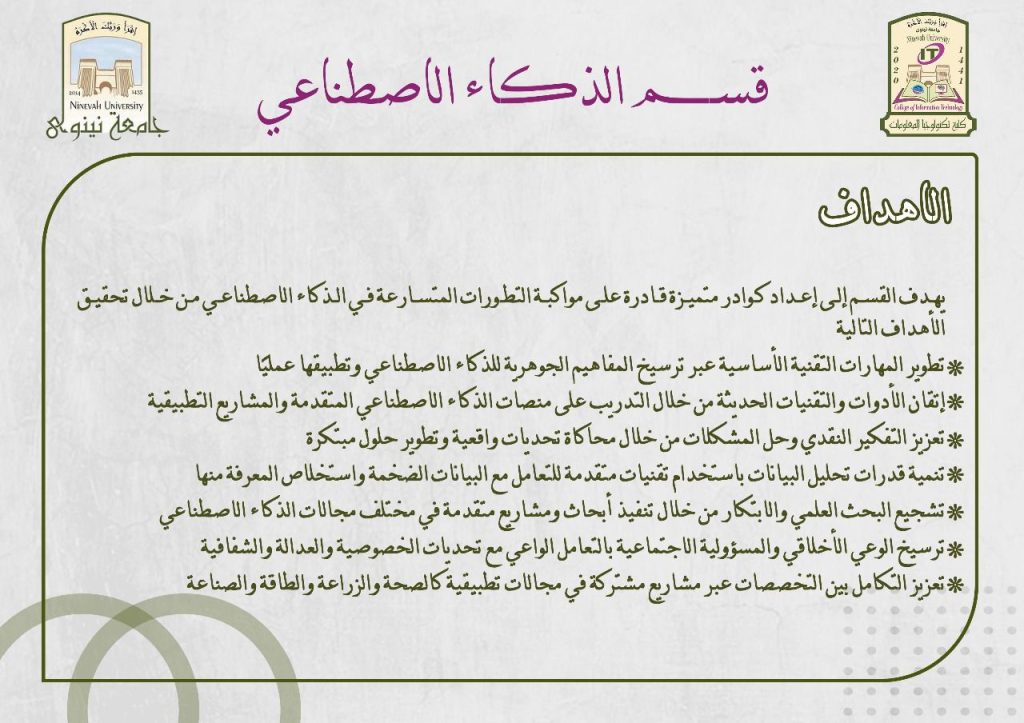 اقرأ وربك الأكرم
2014 1435
NINEVAH UNIVERSITY
جامعة نينوى
قسم الذكاء الاصطناعي
اقرأ وربك الأكرم
جامعة نينوى
Ninevah University
2020 1441
IT
College of Information Technology
كلية تكنولوجيا المعلومات
الأهداف
يهدف القسم إلى إعداد كوادر متميزة قادرة على مواكبة التطورات المتسارعة في الذكاء الاصطناعي من خلال تحقيق
الأهداف التالية
❋ تطوير المهارات التقنية الأساسية عبر ترسيخ المفاهيم الجوهرية للذكاء الاصطناعي وتطبيقها عمليًا
❋ إتقان الأدوات والتقنيات الحديثة من خلال التدريب على منصات الذكاء الاصطناعي المتقدمة والمشاريع التطبيقية
❋ تعزيز التفكير النقدي وحل المشكلات من خلال محاكاة تحديات واقعية وتطوير حلول مبتكرة
❋ تنمية قدرات تحليل البيانات باستخدام تقنيات متقدمة للتعامل مع البيانات الضخمة واستخلاص المعرفة منها
❋ تشجيع البحث العلمي والابتكار من خلال تنفيذ أبحاث ومشاريع متقدمة في مختلف مجالات الذكاء الاصطناعي
❋ ترسيخ الوعي الأخلاقي والمسؤولية الاجتماعية بالتعامل الواعي مع تحديات الخصوصية والعدالة والشفافية
❋ تعزيز التكامل بين التخصصات عبر مشاريع مشتركة في مجالات تطبيقية كالصحة والزراعة والطاقة والصناعة